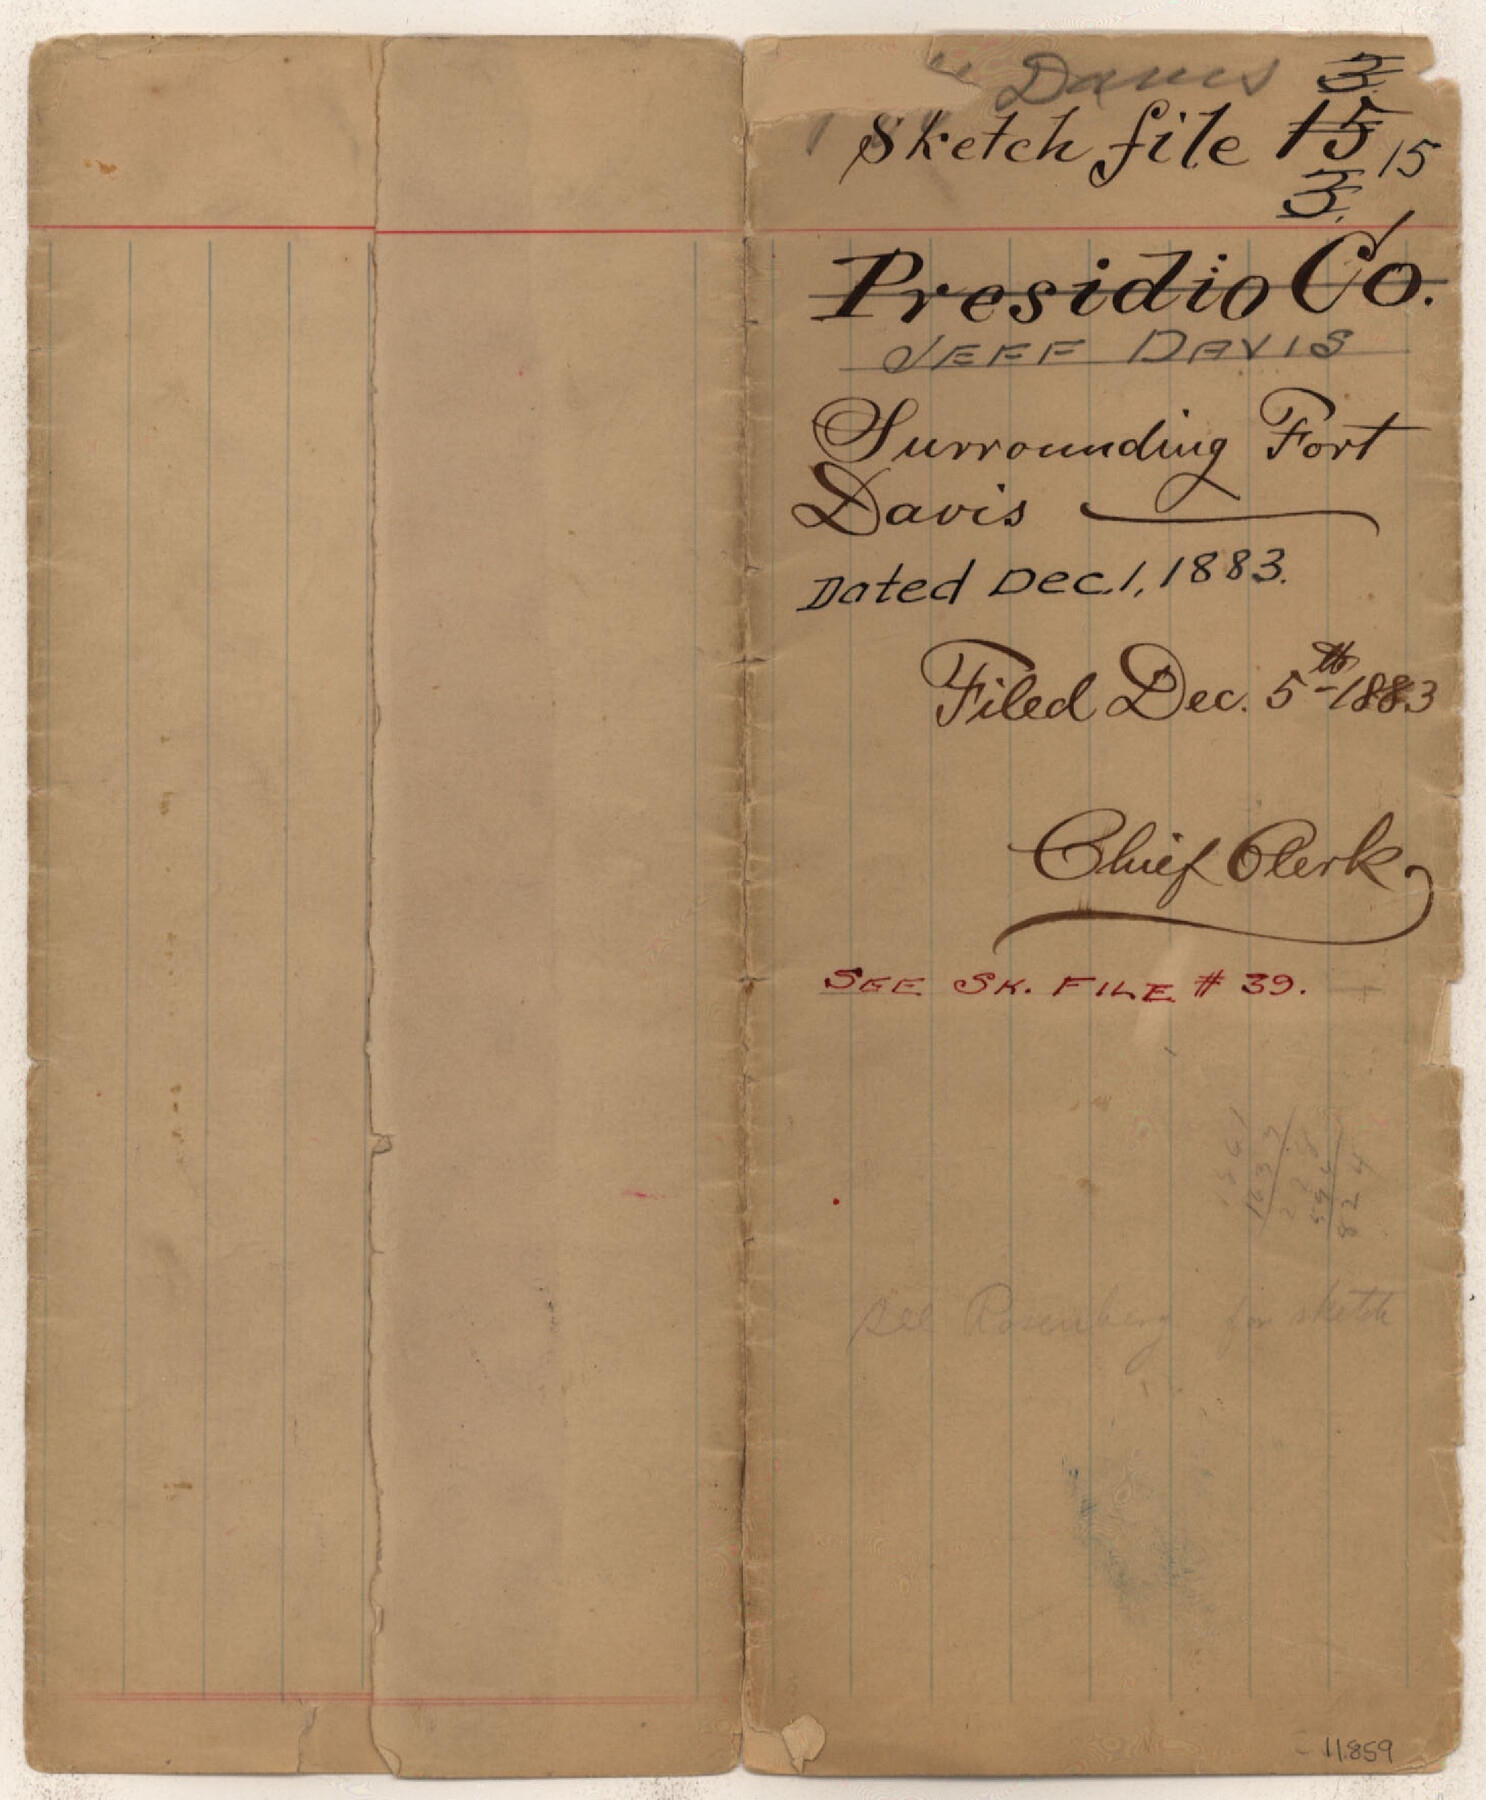 Davis 3
Sketch file 15 15
3.
Presidio Co.
JEFF DAVIS
Surrounding Fort
Davis
Dated Dec. 1, 1883.
Filed Dec. 5th 1883
Chief Clerk
SEE SK. FILE # 39.
824
see Rosenberg for sketch
11859